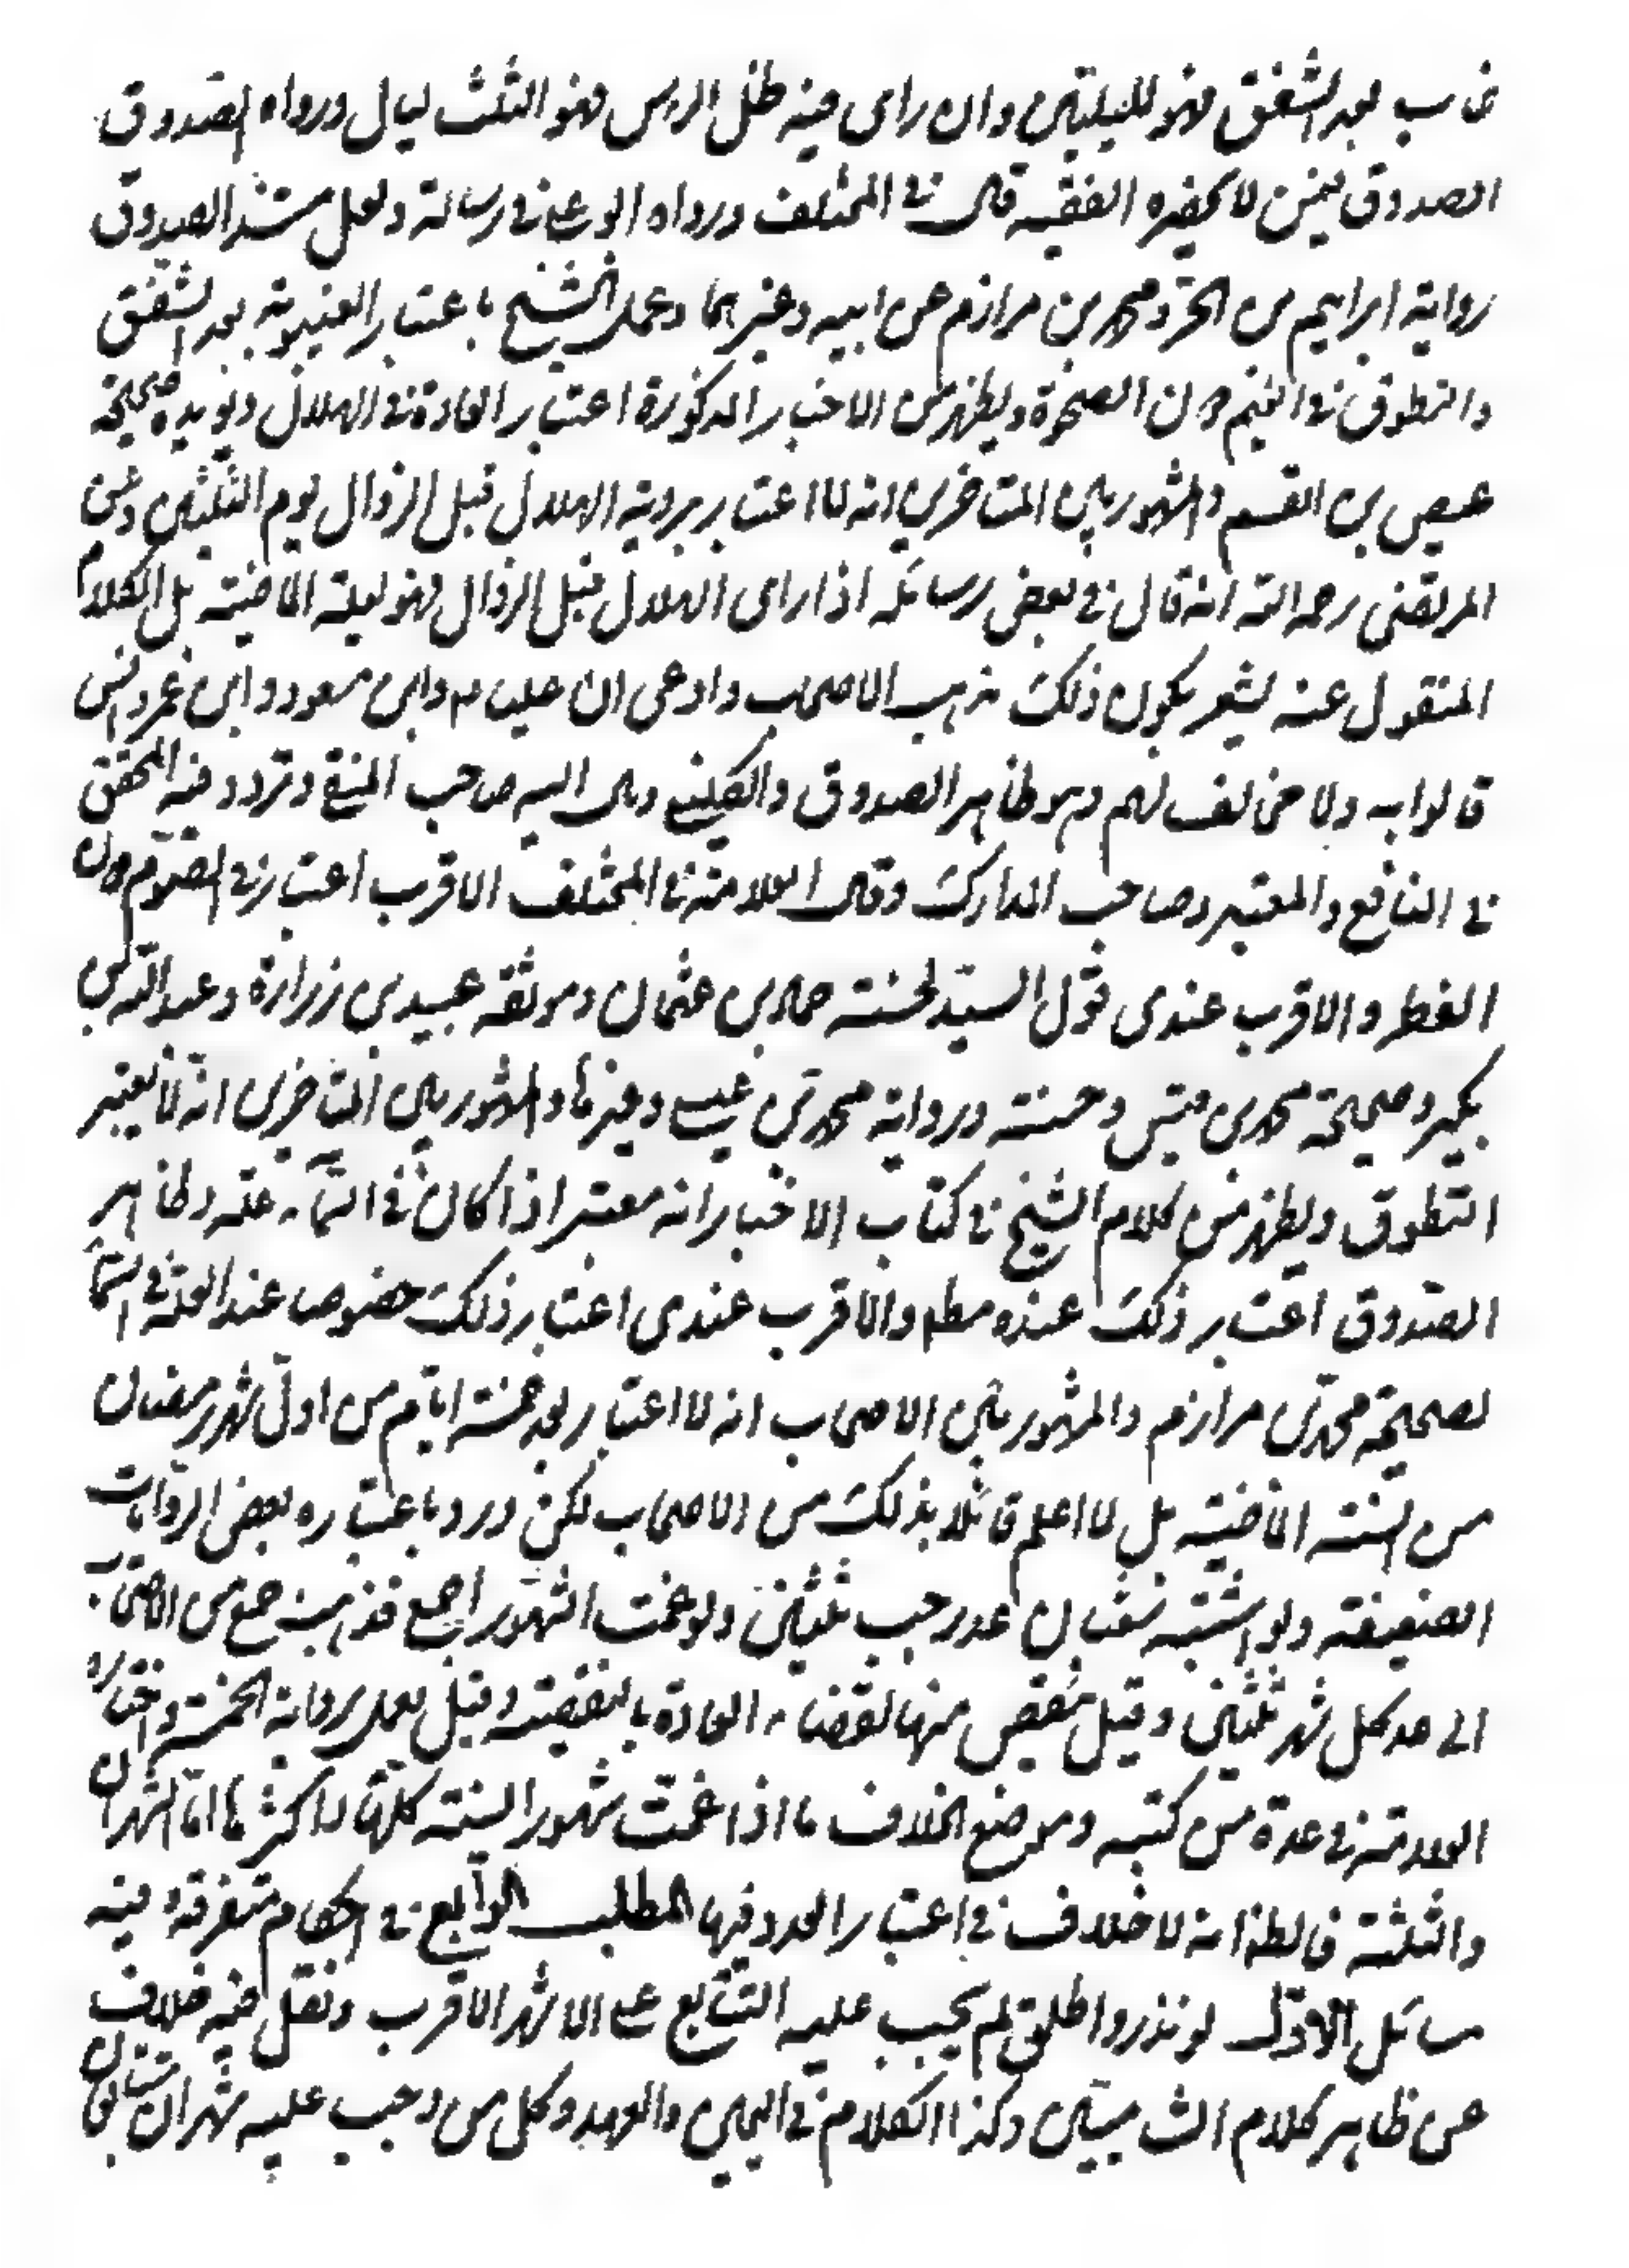 غاب بعد الشفق فهو لليلتين وان راى فيه ظل الراس فهو الثلث ليال ورواه الصدوق
الصدوق فيمن لا يحضره الفقيه قال في المختلف ورواه ابو علي في رسالته ولعل مستند الصدوق
رواية ابراهيم بن الحر ومحمد بن مرازم عن ابيه وغيرهما وعمل الشيخ باعتبار الغيبوبة بعد الشفق
والتطوق في الغيم دون الصحو ويظهر من الاخبار المذكورة اعتبار العادة في الهلال ويؤيده صحيحة
عيص بن القسم والمشهور بين المتاخرين انه لا اعتبار برؤية الهلال قبل الزوال يوم الثلثين وعن
المرتضى رحمه الله انه قال في بعض رسائله اذا راى الهلال قبل الزوال فهو لليلة الماضية بل الكلام
المنقول عنه يشعر بكون ذلك مذهب الاصحاب وادعى ان عليا ع وابن مسعود وابن عمر وانس
قالوا به ولا مخالف لهم وهو ظاهر الصدوق والكليني ومال اليه صاحب المنتقى وتردد فيه المحقق
في النافع والمعتبر وصاحب المدارك وقال العلامة في المختلف الاقرب اعتباره في الصوم دون
الفطر والاقرب عندي قول السيد لحسنة حماد بن عثمان وموثقة عبيد بن زرارة وعبد الله بن
بكير وصحيحة محمد بن قيس وحسنته ورواية محمد بن عيسى وغيرها والمشهور بين المتاخرين انه لا يعتبر
التطوق ويظهر من كلام الشيخ في كتاب الاخبار انه معتبر اذا كان في السماء علة وظاهر
الصدوق اعتبار ذلك عنده مطم والاقرب عندي اعتبار ذلك خصوصا عند العلة في السماء
لصحيحة محمد بن مرازم والمشهور بين الاصحاب انه لا اعتبار بعد خمسة ايام من اول شهر رمضان
من السنة الماضية بل لا اعلم قائلا بذلك من الاصحاب لكن ورد باعتباره بعض الروايات
الضعيفة ولو اشتبه شعبان عد رجب ثلثين ولو غمت الشهور اجمع فذهب جمع من الاصحاب
الى عد كل شهر ثلثين وقيل ينقص منها لقضاء العادة بالنقيصة وقيل يعمل برواية الخمسة واختاره
العلامة في عدة من كتبه وموضع الخلاف ما اذا غمت شهور السنة كلها او اكثرها اما الشهران
والثلثة فالظ انه لا خلاف في اعتبار العدد فيها المطلب الرابع في احكام متفرقة وفيه
مسائل الاول لو نذر واطلق لم يجب عليه التتابع على الاشهر الاقرب ونقل فيه خلاف
عن ظاهر كلام الشاميين وكذا الكلام في اليمين والعهد وكل من وجب عليه شهران متتابعان